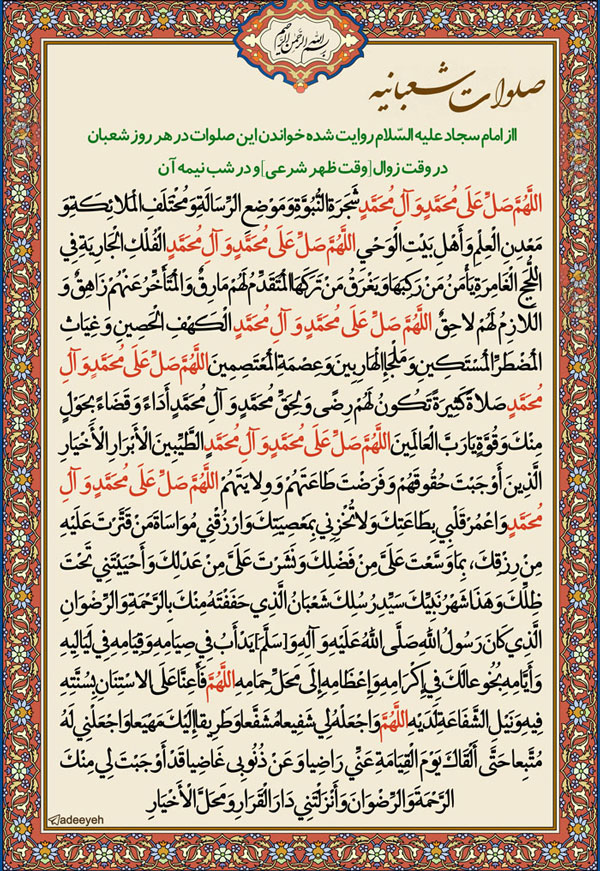 بسم الله الرحمن الرحیم
صلوات شعبانیه
از امام سجاد علیه السّلام روایت شده خواندن این صلوات در هر روز شعبان
در وقت زوال [وقت ظهر شرعی] و در شب نیمه آن
اللَّهُمَّ صَلِّ عَلَى مُحَمَّدٍ وَ آلِ مُحَمَّدٍ شَجَرَةِ النُّبُوَّةِ وَ مَوْضِعِ الرِّسَالَةِ وَ مُخْتَلَفِ الْمَلائِكَةِ وَ
مَعْدِنِ الْعِلْمِ وَ أَهْلِ بَيْتِ الْوَحْيِ اللَّهُمَّ صَلِّ عَلَى مُحَمَّدٍ وَ آلِ مُحَمَّدٍ الْفُلْكِ الْجَارِيَةِ فِي
اللُّجَجِ الْغَامِرَةِ يَأْمَنُ مَنْ رَكِبَهَا وَ يَغْرَقُ مَنْ تَرَكَهَا الْمُتَقَدِّمُ لَهُمْ مَارِقٌ وَ الْمُتَأَخِّرُ عَنْهُمْ زَاهِقٌ وَ
اللازِمُ لَهُمْ لاحِقٌ اللَّهُمَّ صَلِّ عَلَى مُحَمَّدٍ وَ آلِ مُحَمَّدٍ الْكَهْفِ الْحَصِينِ وَ غِيَاثِ
الْمُضْطَرِّ الْمُسْتَكِينِ وَ مَلْجَإِ الْهَارِبِينَ وَ عِصْمَةِ الْمُعْتَصِمِينَ اللَّهُمَّ صَلِّ عَلَى مُحَمَّدٍ وَ آلِ
مُحَمَّدٍ صَلاةً كَثِيرَةً تَكُونُ لَهُمْ رِضًى وَ لِحَقِّ مُحَمَّدٍ وَ آلِ مُحَمَّدٍ أَدَاءً وَ قَضَاءً بِحَوْلٍ
مِنْكَ وَ قُوَّةٍ يَا رَبَّ الْعَالَمِينَ اللَّهُمَّ صَلِّ عَلَى مُحَمَّدٍ وَ آلِ مُحَمَّدٍ الطَّيِّبِينَ الْأَبْرَارِ الْأَخْيَارِ
الَّذِينَ أَوْجَبْتَ حُقُوقَهُمْ وَ فَرَضْتَ طَاعَتَهُمْ وَ وِلايَتَهُمْ اللَّهُمَّ صَلِّ عَلَى مُحَمَّدٍ وَ آلِ
مُحَمَّدٍ وَ اعْمُرْ قَلْبِي بِطَاعَتِكَ وَ لا تُخْزِنِي بِمَعْصِيَتِكَ وَ ارْزُقْنِي مُوَاسَاةَ مَنْ قَتَّرْتَ عَلَيْهِ
مِنْ رِزْقِكَ، بِمَا وَسَّعْتَ عَلَيَّ مِنْ فَضْلِكَ وَ نَشَرْتَ عَلَيَّ مِنْ عَدْلِكَ وَ أَحْيَيْتَنِي تَحْتَ
ظِلِّكَ وَ هَذَا شَهْرُ نَبِيِّكَ سَيِّدِ رُسُلِكَ شَعْبَانُ الَّذِي حَفَفْتَهُ مِنْكَ بِالرَّحْمَةِ وَ الرِّضْوَانِ
الَّذِي كَانَ رَسُولُ اللهِ صَلَّى اللهُ عَلَيْهِ وَ آلِهِ وَ [سَلَّمَ] يَدْأَبُ فِي صِيَامِهِ وَ قِيَامِهِ فِي لَيَالِيهِ
وَ أَيَّامِهِ بُخُوعا لَكَ فِي إِكْرَامِهِ وَ إِعْظَامِهِ إِلَى مَحَلِّ حِمَامِهِ اللَّهُمَّ فَأَعِنَّا عَلَى الاسْتِنَانِ بِسُنَّتِهِ
فِيهِ وَ نَيْلِ الشَّفَاعَةِ لَدَيْهِ اللَّهُمَّ وَ اجْعَلْهُ لِي شَفِيعا مُشَفَّعا وَ طَرِيقا إِلَيْكَ مَهْيَعا وَ اجْعَلْنِي لَهُ
مُتَّبِعا حَتَّى أَلْقَاكَ يَوْمَ الْقِيَامَةِ عَنِّي رَاضِيا وَ عَنْ ذُنُوبِي غَاضِيا قَدْ أَوْجَبْتَ لِي مِنْكَ
الرَّحْمَةَ وَ الرِّضْوَانَ وَ أَنْزَلْتَنِي دَارَ الْقَرَارِ وَ مَحَلَّ الْأَخْيَارِ
adeeyeh